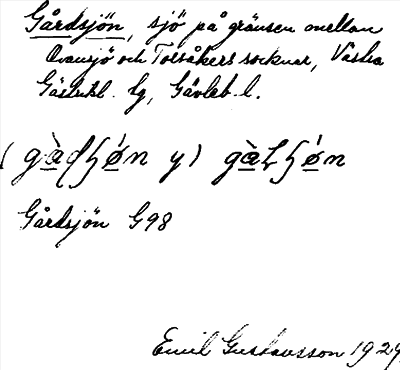 Gårdsjön, sjö på gränsen mellan
Ovansjö och Torsåkers socknar, Västra
Gästrikl. tg, Gävleb. l.
Gårdsjön G98
Emil Gustavsson 1929